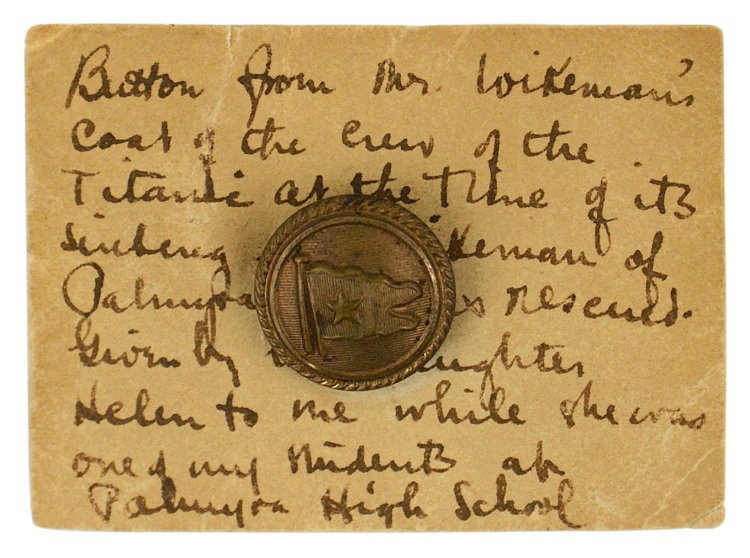 Button from Mr. Wikeman's
Coat of the Crew of the
Titanic at the Time of its
Sinking keman of
Palmyra s rescued.
Given by ughter
Helen to me while she was
one of my students at
Palmyra High School